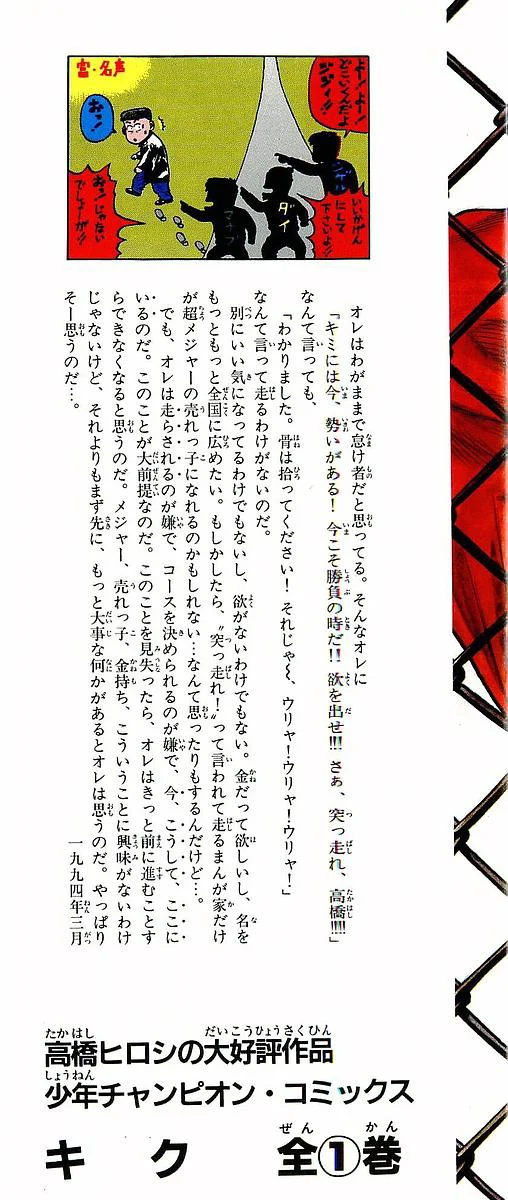 富・名声
よー！よー！
どこいくんだよ
ジジイ！！
おー！
いいかげん
にして
下さいよ！！
ダイ
マナブ
おーじゃない
でしょーが！！
オレはわがままで怠け者だと思ってる。そんなオレに
「キミには今、勢いがある！今こそ勝負の時だ!!欲を出せ!!!さぁ、突っ走れ、高橋!!!!」
なんて言っても、
「わかりました。骨は拾ってください！それじゃ〜、ウリャ！ウリャ！ウリャ！」
なんて言って走るわけがないのだ。
別にいい気になってるわけでもないし、欲がないわけでもない。金だって欲しいし、名を
もっともっと全国に広めたい。もしかしたら、〝突っ走れ！〟って言われて走るまんが家だけ
が超メジャーの売れっ子になれるのかもしれない…なんて思ったりもするんだけど…。
でも、オレは走らされるのが嫌で、コースを決められるのが嫌で、今、こうして、ここに
いるのだ。このことが大前提なのだ。このことを見失ったら、オレはきっと前に進むことす
らできなくなると思うのだ。メジャー、売れっ子、金持ち、こういうことに興味がないわけ
じゃないけど、それよりもまず先に、もっと大事な何かがあるとオレは思うのだ。やっぱり
そー思うのだ…。
一九九四年三月
高橋ヒロシの大好評作品
少年チャンピオン・コミックス
キク 全①巻